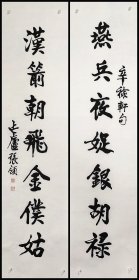 燕兵夜娖銀胡䩮
辛稼軒句
漢箭朝飛金僕姑
長廬張頷